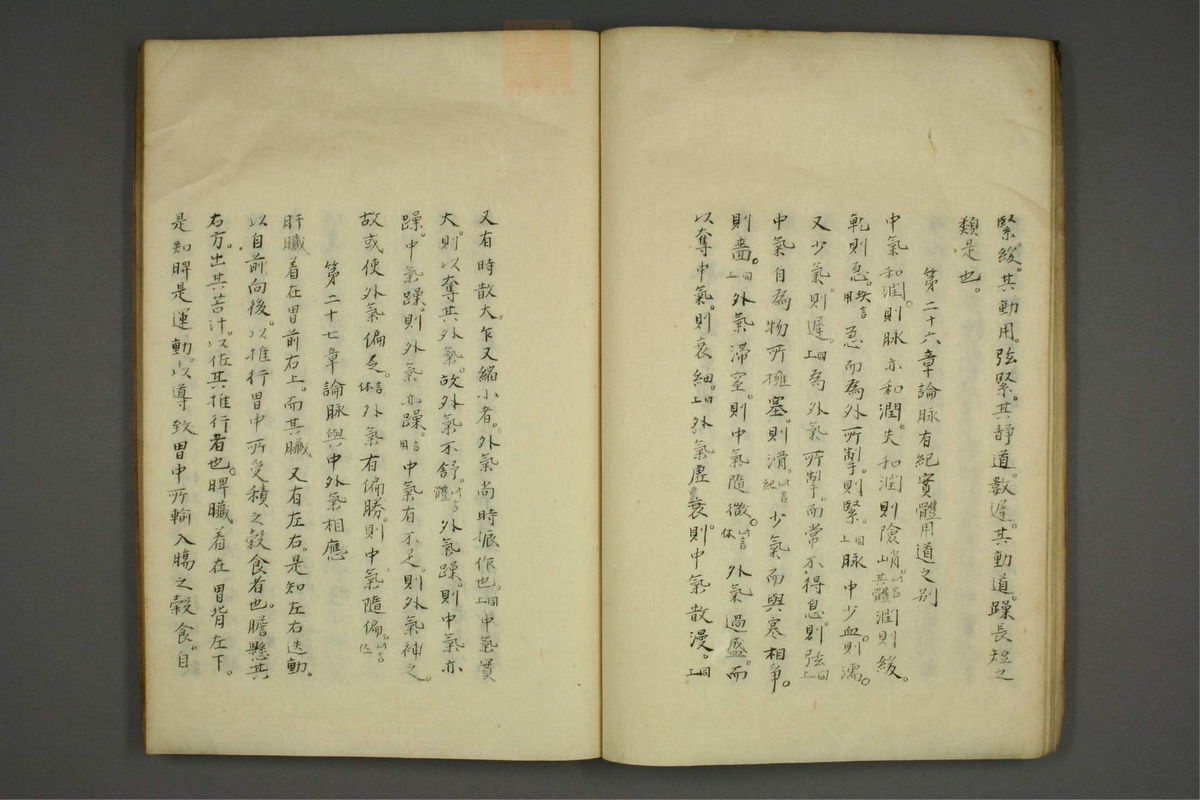 緊緩。其動用。弦緊。其靜道。數遲。其動道。躁長短之
類是也。
第二十六章論脉有紀實體用道之別
中氣和潤。則脉亦和潤。失和潤則險峭。此言其體潤則緩。
乾則急。此言用急而為外所制。手則緊。同上脉中少血。則濡。
又少氣。則遲。同上為外氣所掣。而常不得息。則弦同上
中氣自為物所擁塞。則滑。此言紀少氣而與寒相爭。
則嗇。同上外氣滯窒。則中氣隨微。此言体外氣過盛。而
以奪中氣。則衰細。同上外氣虛衰。則中氣散漫。同上
又有時散大。乍又縮小者。外氣尚時振作也。同上中氣實
大。則以奪其外氣。故外氣不舒。此言體外氣躁。則中氣亦
躁。中氣躁。則外氣亦躁。言用中氣有不足。則外氣補之。
故或使外氣偏乏。言体外氣有偏勝。則中氣隨偏。此言佐
第二十七章論脉與中外氣相應
肝臟着在胃前右上。而其臟又有左右。是知左右迭動。
以自前向後。以推行胃中所受積之穀食者也。膽懸其
右方。出其苦汁。以佐其推行者也。脾臟着在胃背左下。
是知脾是運動。以導致胃中所輸入腸之穀食。自